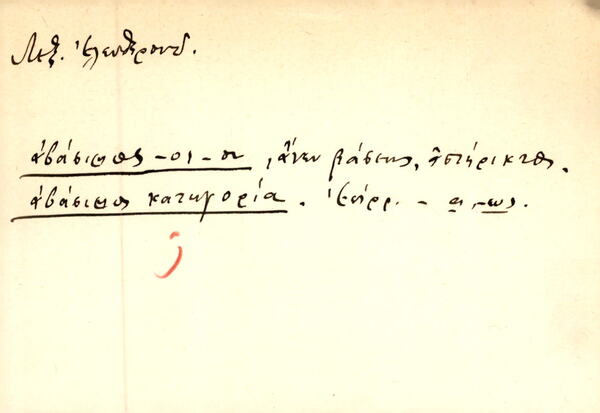 Λεξ. Ἐλευθερουδ.
ἀβάσιμος -ος -ον, ἄνευ βάσεως, ἀστήρικτος.
ἀβάσιμος κατηγορία. Ἐπίρρ. - α, -ως.